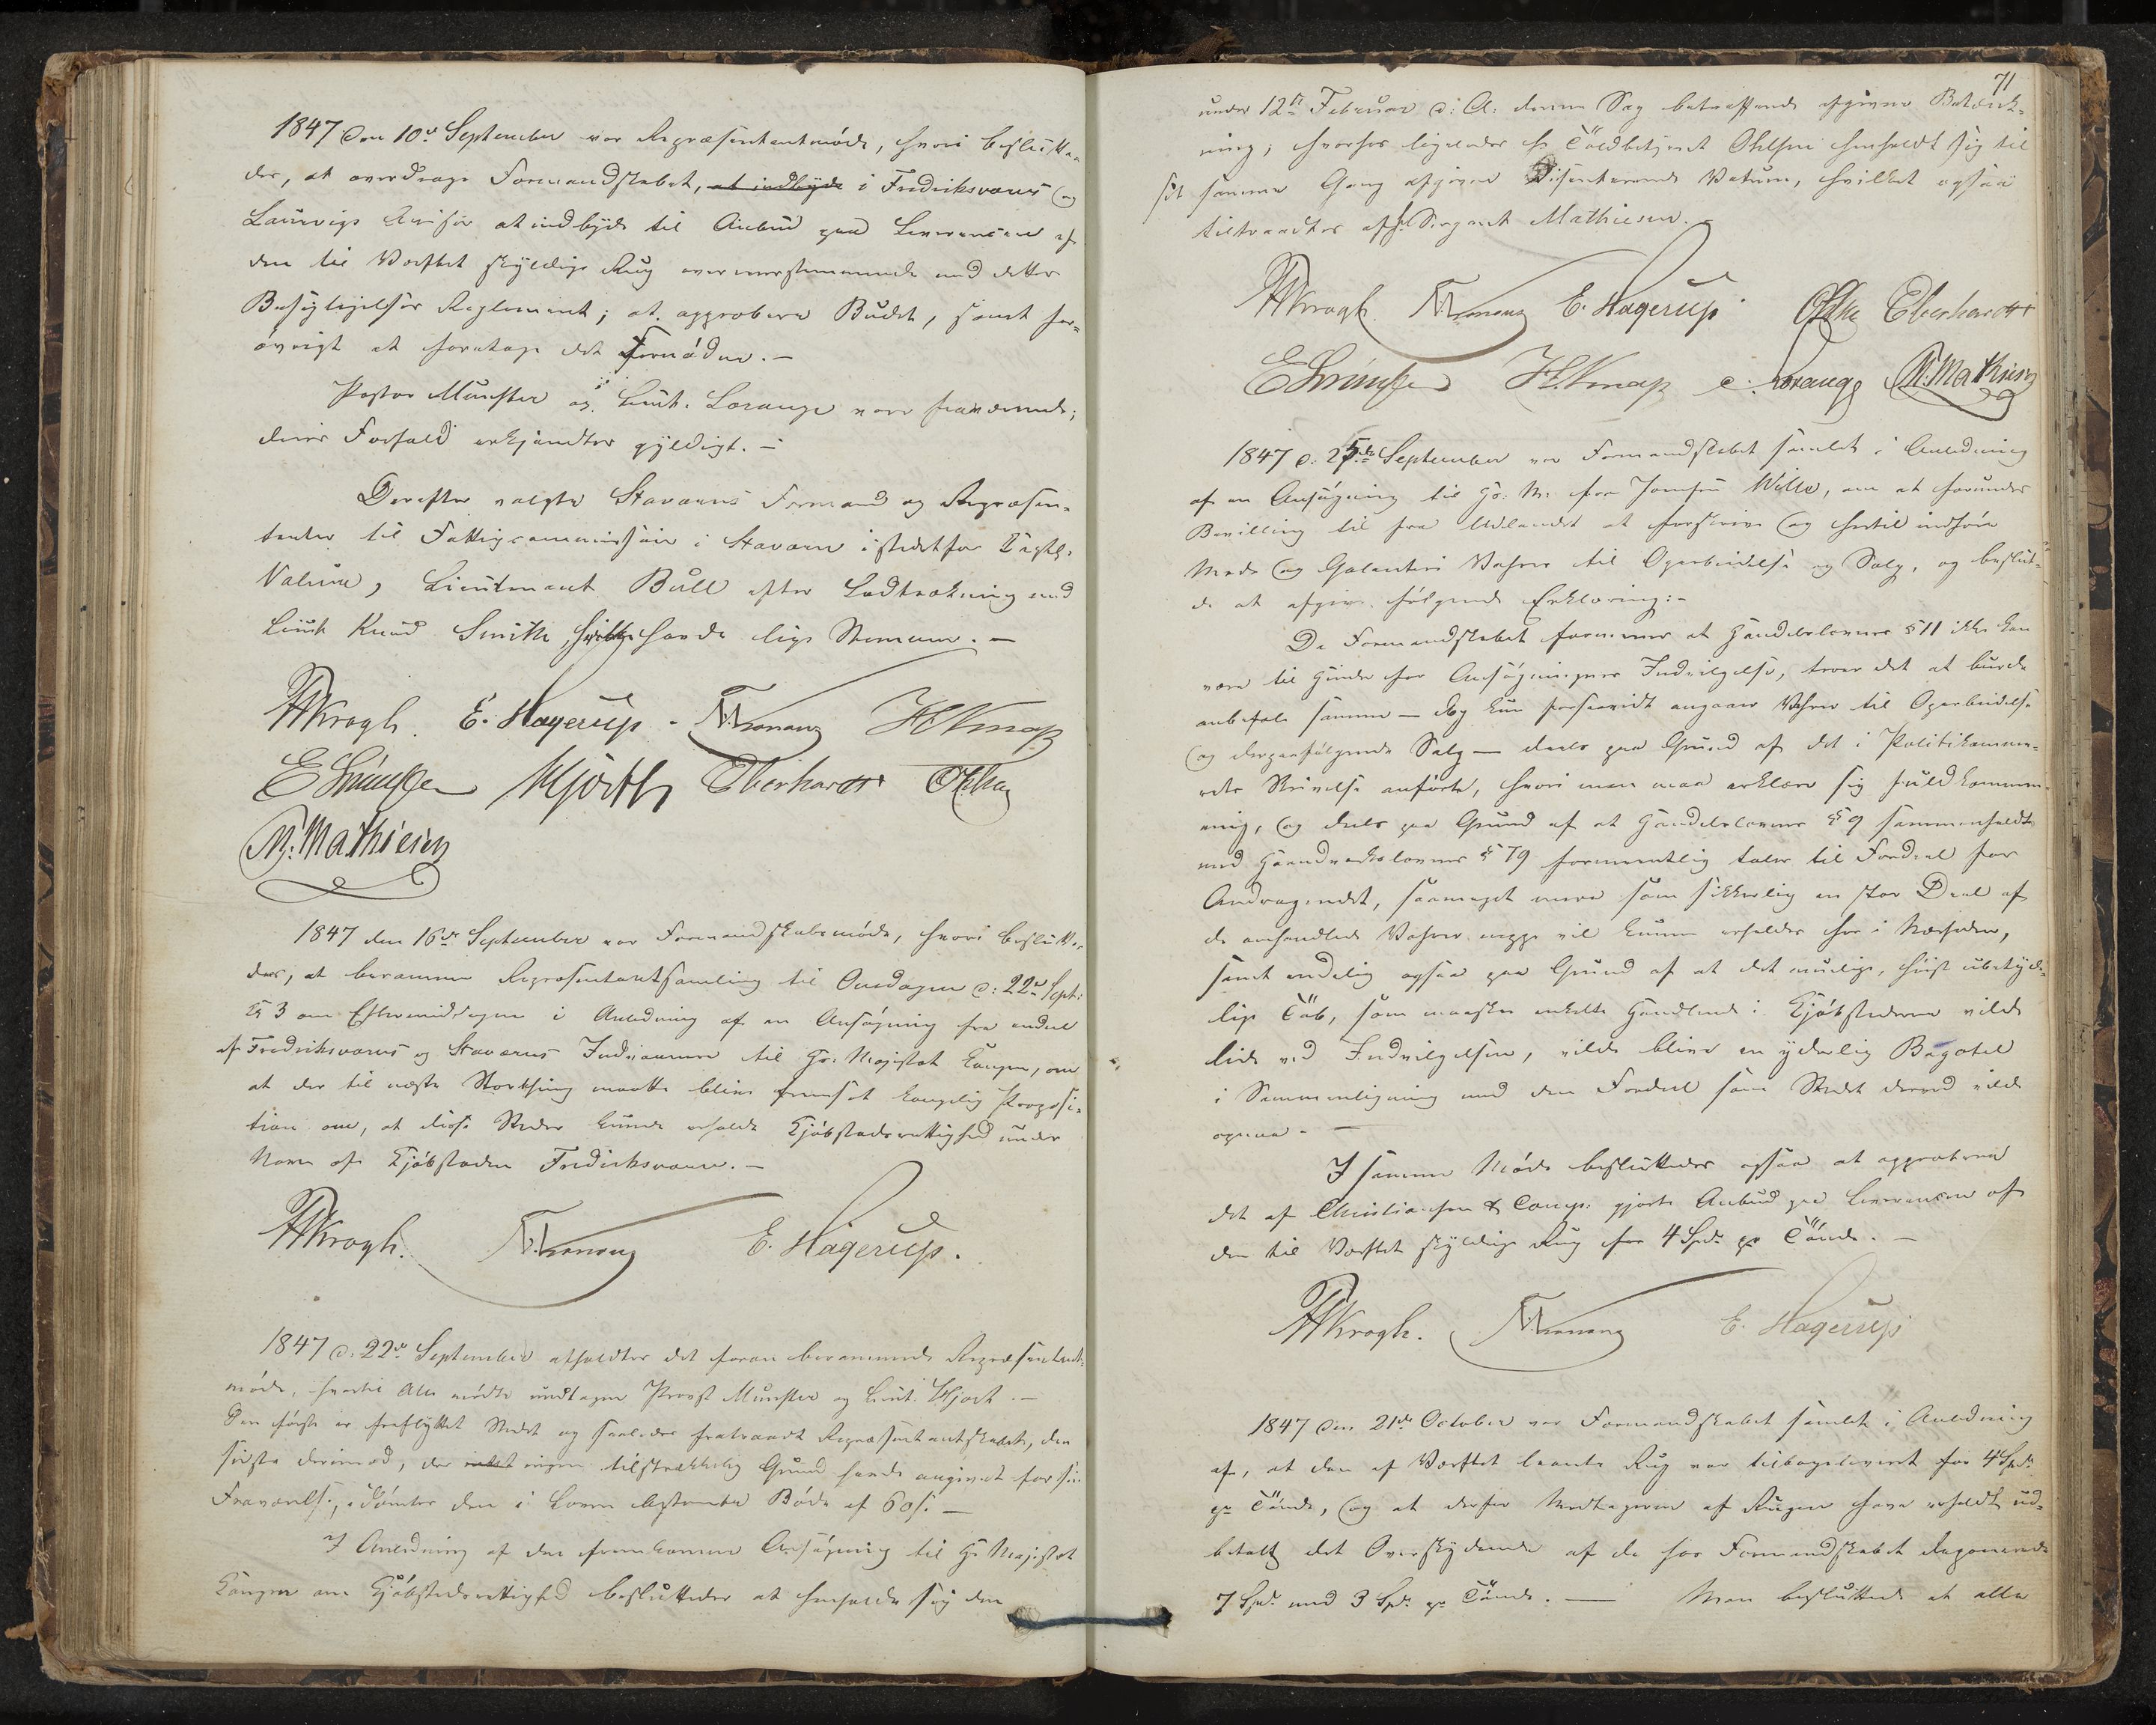 1847 den 10de September var Repræsentantmøde, hvori beslutte-
des, at overdrage Formandskabet, at indbyde i Fredriksværns og
Laurvigs Aviser at indbyde til Anbud paa Leverancen af
den til Værftet skyldige Rug overeensstemmende med dettes
Besigtigelses Reglement; at approbere Budet, samt for-
øvrigt at foretage det Fornødne. —
Pastor Münster og Lieut. Lorange vare fraværende;
deres Forfald erkjendtes gyldigt. —
Derefter valgte Staværns Formænd og Repræsen-
tanter til Fattigcommissair i Staværn istedetfor
Valeur, Lieutenant Bull efter Lodtrækning med
Lieut Knud Smith, hvilke havde lige Stemmer. —
HWKrogh. E. Hagerup. TAronang HCKnap
ESmith Hjorth Eberhardt Ohlsen
N. Mathiesen
1847 den 16de September var Formandskabsmøde, hvori beslutte-
des, at beramme Repræsentantsamling til Onsdagen d: 22de Sept:
Kl 3 om Eftermiddagen i Anledning af en Ansøgning fra endeel
af Fredriksværns og Staværns Indvaanere til Hs: Majestæt Kongen, om
at der til næste Storthing maatte blive fremsat kongelig Proposi-
tion om, at disse Steder kunde erholde Kjøbstadsrettighed under
Navn af Kjøbstaden Fredriksværn. —
HWKrogh. TAronang E. Hagerup.
1847 d. 22de September afholdtes det foran berammede Repræsentant-
møde, hvortil Alle mødte undtagen Provst Münster og Lieut. Hjort. —
Den første er fraflyttet Stedet og saaledes fratraadt Repræsentantskabet, den
sidste derimod, der intet ingen tilstrækkelig Grund havde angivet for sin
Fraværelse, idømtes den i Loven bestemte Bøde af 60 s. —
I Anledning af den fremkomne Ansøgning til Hs Majestæt
Kongen om Kjøbstadsrettighed besluttedes at henholde sig den
71
under 12te Februar d: A: denne Sag betræffende afgivne Betænk-
ning; hvorhos ligeledes Hr Toldbetjent Ohlsen henholdt sig til
sit samme Gang afgivne Disenterende Votum, hvilket ogsaa
tiltraadtes af Hr Sergeant Mathiesen.
HWKrogh. TAronang E. Hagerup Ohlsen Eberhardt
ESmith HCKnap C. Lorange N. Mathiesen
1847 d. 25de September var Formandskabet samlet i Anledning
af en Ansøgning til Hs: M: fra Jomfru Wille, om at forundes
Bevilling til fra Udlandet at forskrive og hertil indføre
Mode og Galanteri Vahrer til Oparbeidelse og Salg, og beslut-
de at afgive følgende Erklæring: -
Da Formandskabet formener at Handelslovens § 11 ikke kan
være til Hinder for Ansøgningens Indvilgelse, troer det at burde
anbefale samme — dog kun forsaavidt angaaer Vahrer til Oparbeidelse
og derpaafølgende Salg — deels paa Grund af det i Politikamme-
rets Skrivelse anførte, hvori man maa erklære sig fuldkommen
enig, og deels paa Grund af at Handelslovens § 9 sammenholdt
med Haandværkslovens § 79 formeentlig taler til Fordeel for
Andragendet, saameget mere som sikkerlig en stor Deel af
de omhandlede Vahrer neppe vil kunne erholdes her i Nærheden,
samt endelig ogsaa paa Grund af at det muelige, høist ubetyde-
lige Tab, som maaskee enkelte Handlende i Kjøbstæderne vilde
lide ved Indvilgelsen, vilde blive en yderlig Bagatel
i Sammenligning med den Fordeel som Stedet derved vilde
opnaae. —
I samme Møde besluttedes ogsaa at approbere
det af Christiansen & Comp. gjorte Anbud paa Leverancen af
den til Værftet skyldige Rug for 4 Spd. pr Tønde. —
HWKrogh. TAronang E. Hagerup
1847 den 21de October var Formandskabet samlet i Anledning
af, at den af Værftet laante Rug var tilbageleveret for 4 Spd.
pr Tønde, og at derfor Modtagerne af Rugen have erholdt ud-
betalt det Overskydende af de hos Formandskabet deponerede
7 Spd. med 3 Spd. pr Tønde. — Man besluttede at alle